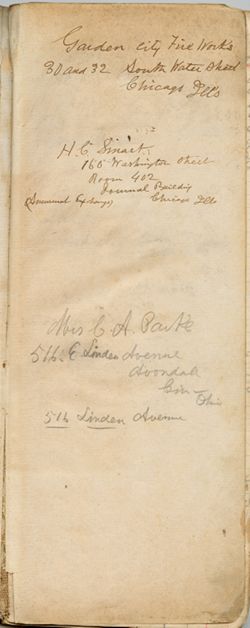 Garden City Fire Works
30 and 32 South Water Street
Chicago Ills
H. C. Smart
166 Washington Street
Room 402
Journal Building
Exchange) Chicago Ills
Mrs C. A. Parke
516. E Linden Avenue
Avondale
Cin-
Ohio
516 Linden Avenue